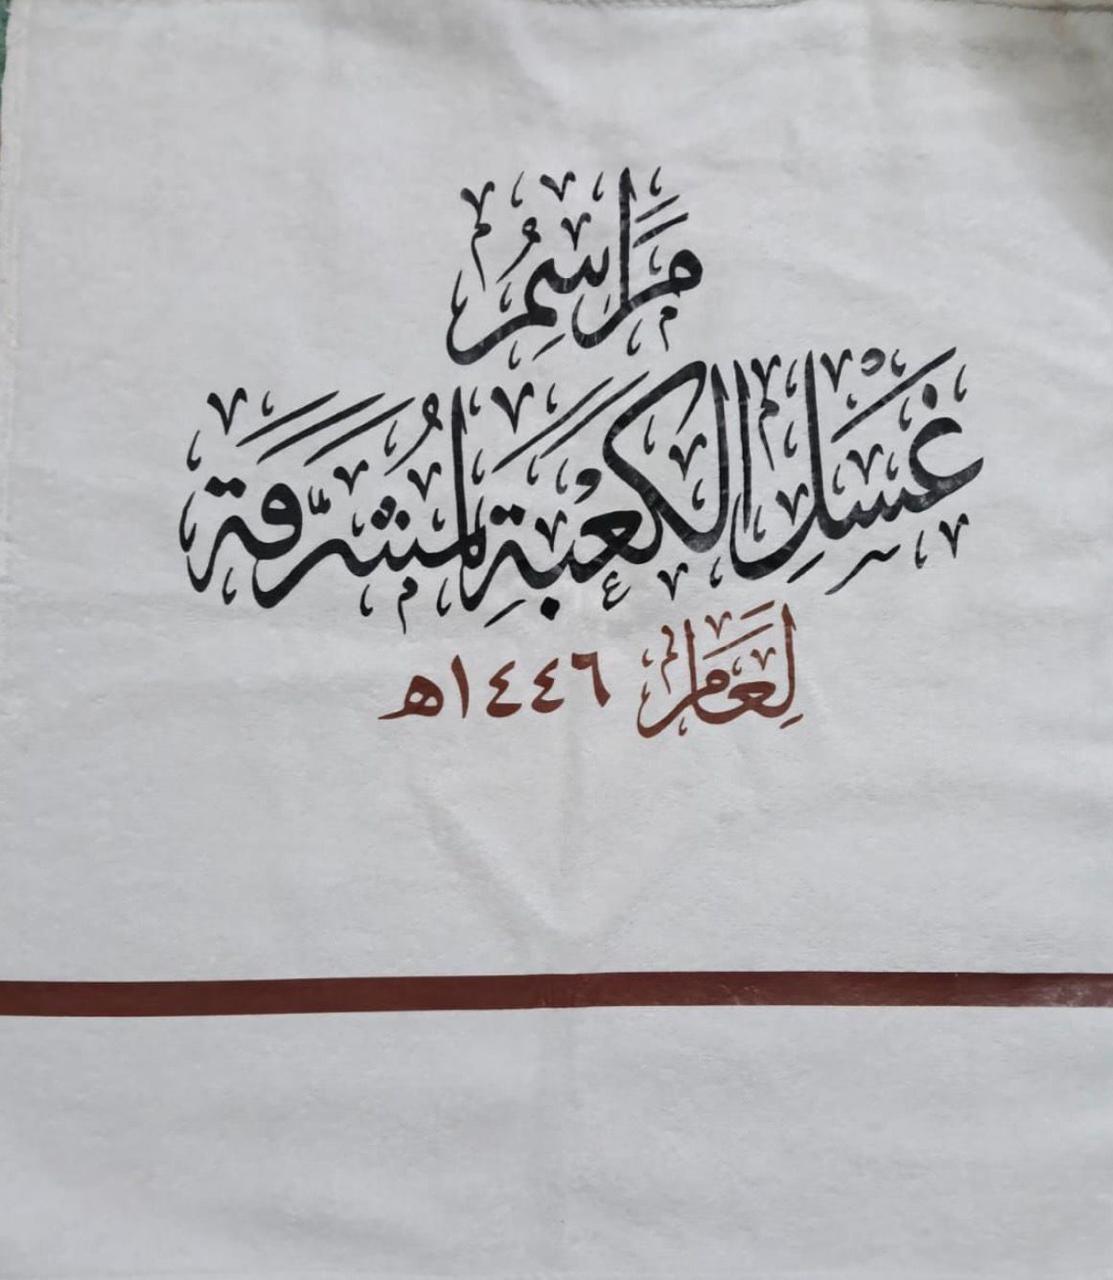 مَرَاسِمُ
غَسْلِ الكَعْبَةِ المُشَرَّفَة
لِعَام ١٤٤٦هـ